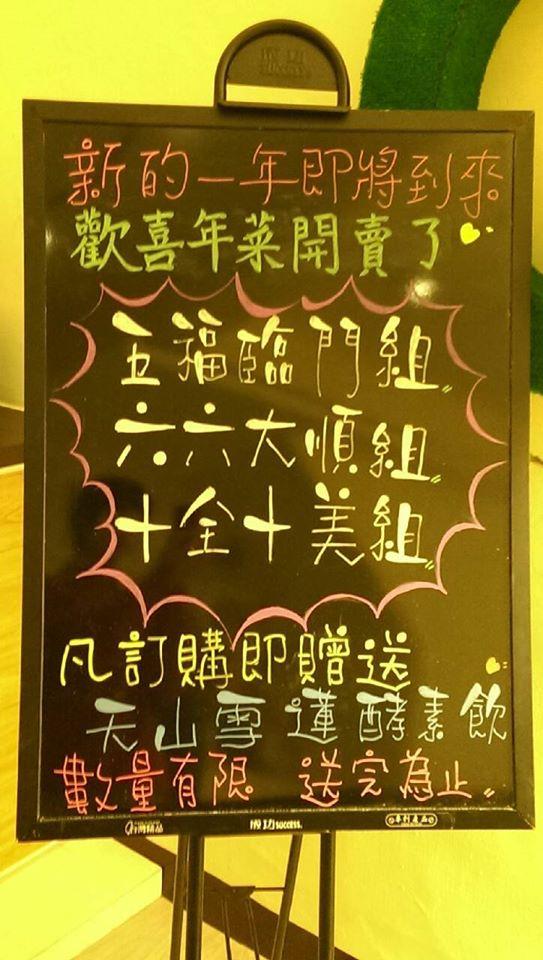 成功
success
新的一年即將到來
歡喜年菜開賣了
五福臨門組
六六大順組
十全十美組
凡訂購即贈送
天山雪蓮酵素飲
數量有限 送完為止
成功 success.
專利產品